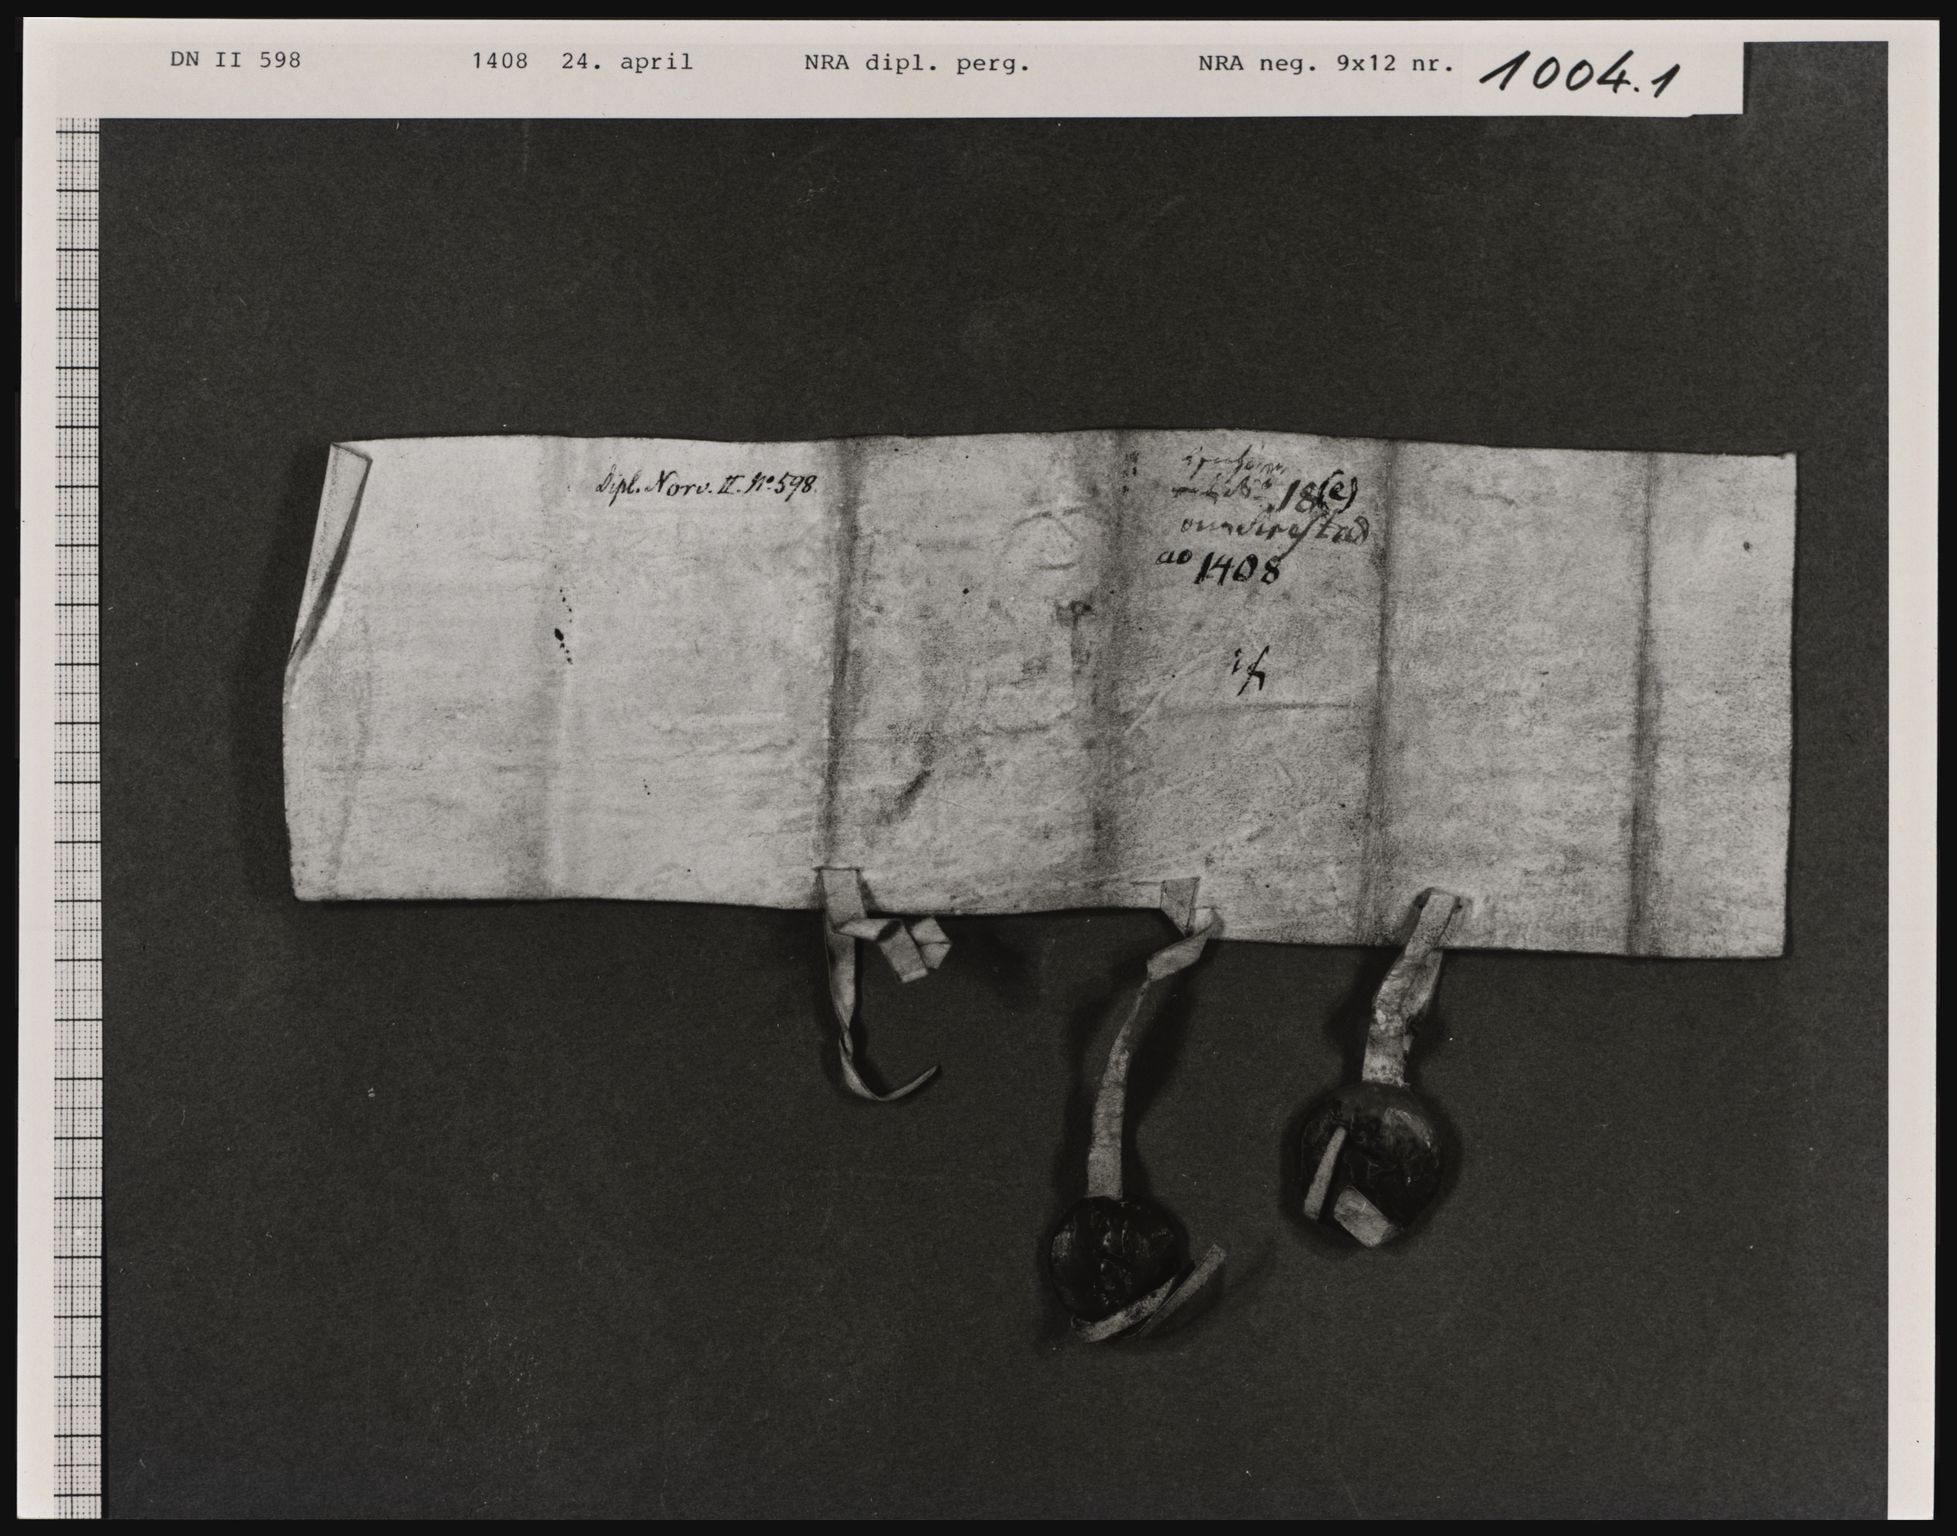 DN II 598 1408 24. april NRA dipl. perg. NRA neg. 9x12 nr. 1004.1
Dipl. Norv. II. No 598.
18(e)
ao 1408